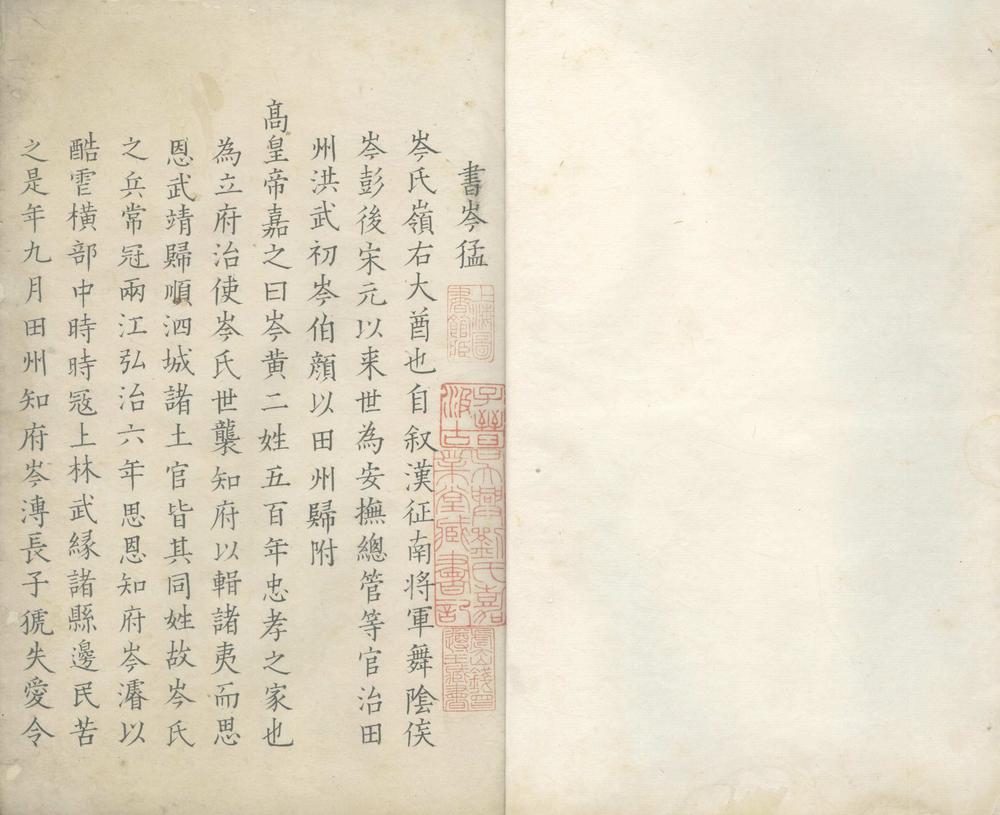 書岑猛
上海圖書館臧
子晉
汲古
吳興劉氏嘉業堂臧書記
虞山錢曾遵王藏書
岑氏嶺右大酋也自叙漢征南将軍舞陰侯
岑彭後宋元以来世為安撫總管等官治田
州洪武初岑伯顔以田州歸附
髙皇帝嘉之曰岑黄二姓五百年忠孝之家也
為立府治使岑氏世襲知府以輯諸夷而思
恩武靖歸順泗城諸土官皆其同姓故岑氏
之兵常冠兩江弘治六年思恩知府岑濬以
酷虐横部中時時寇上林武縁諸縣邊民苦
之是年九月田州知府岑溥長子猇失愛令